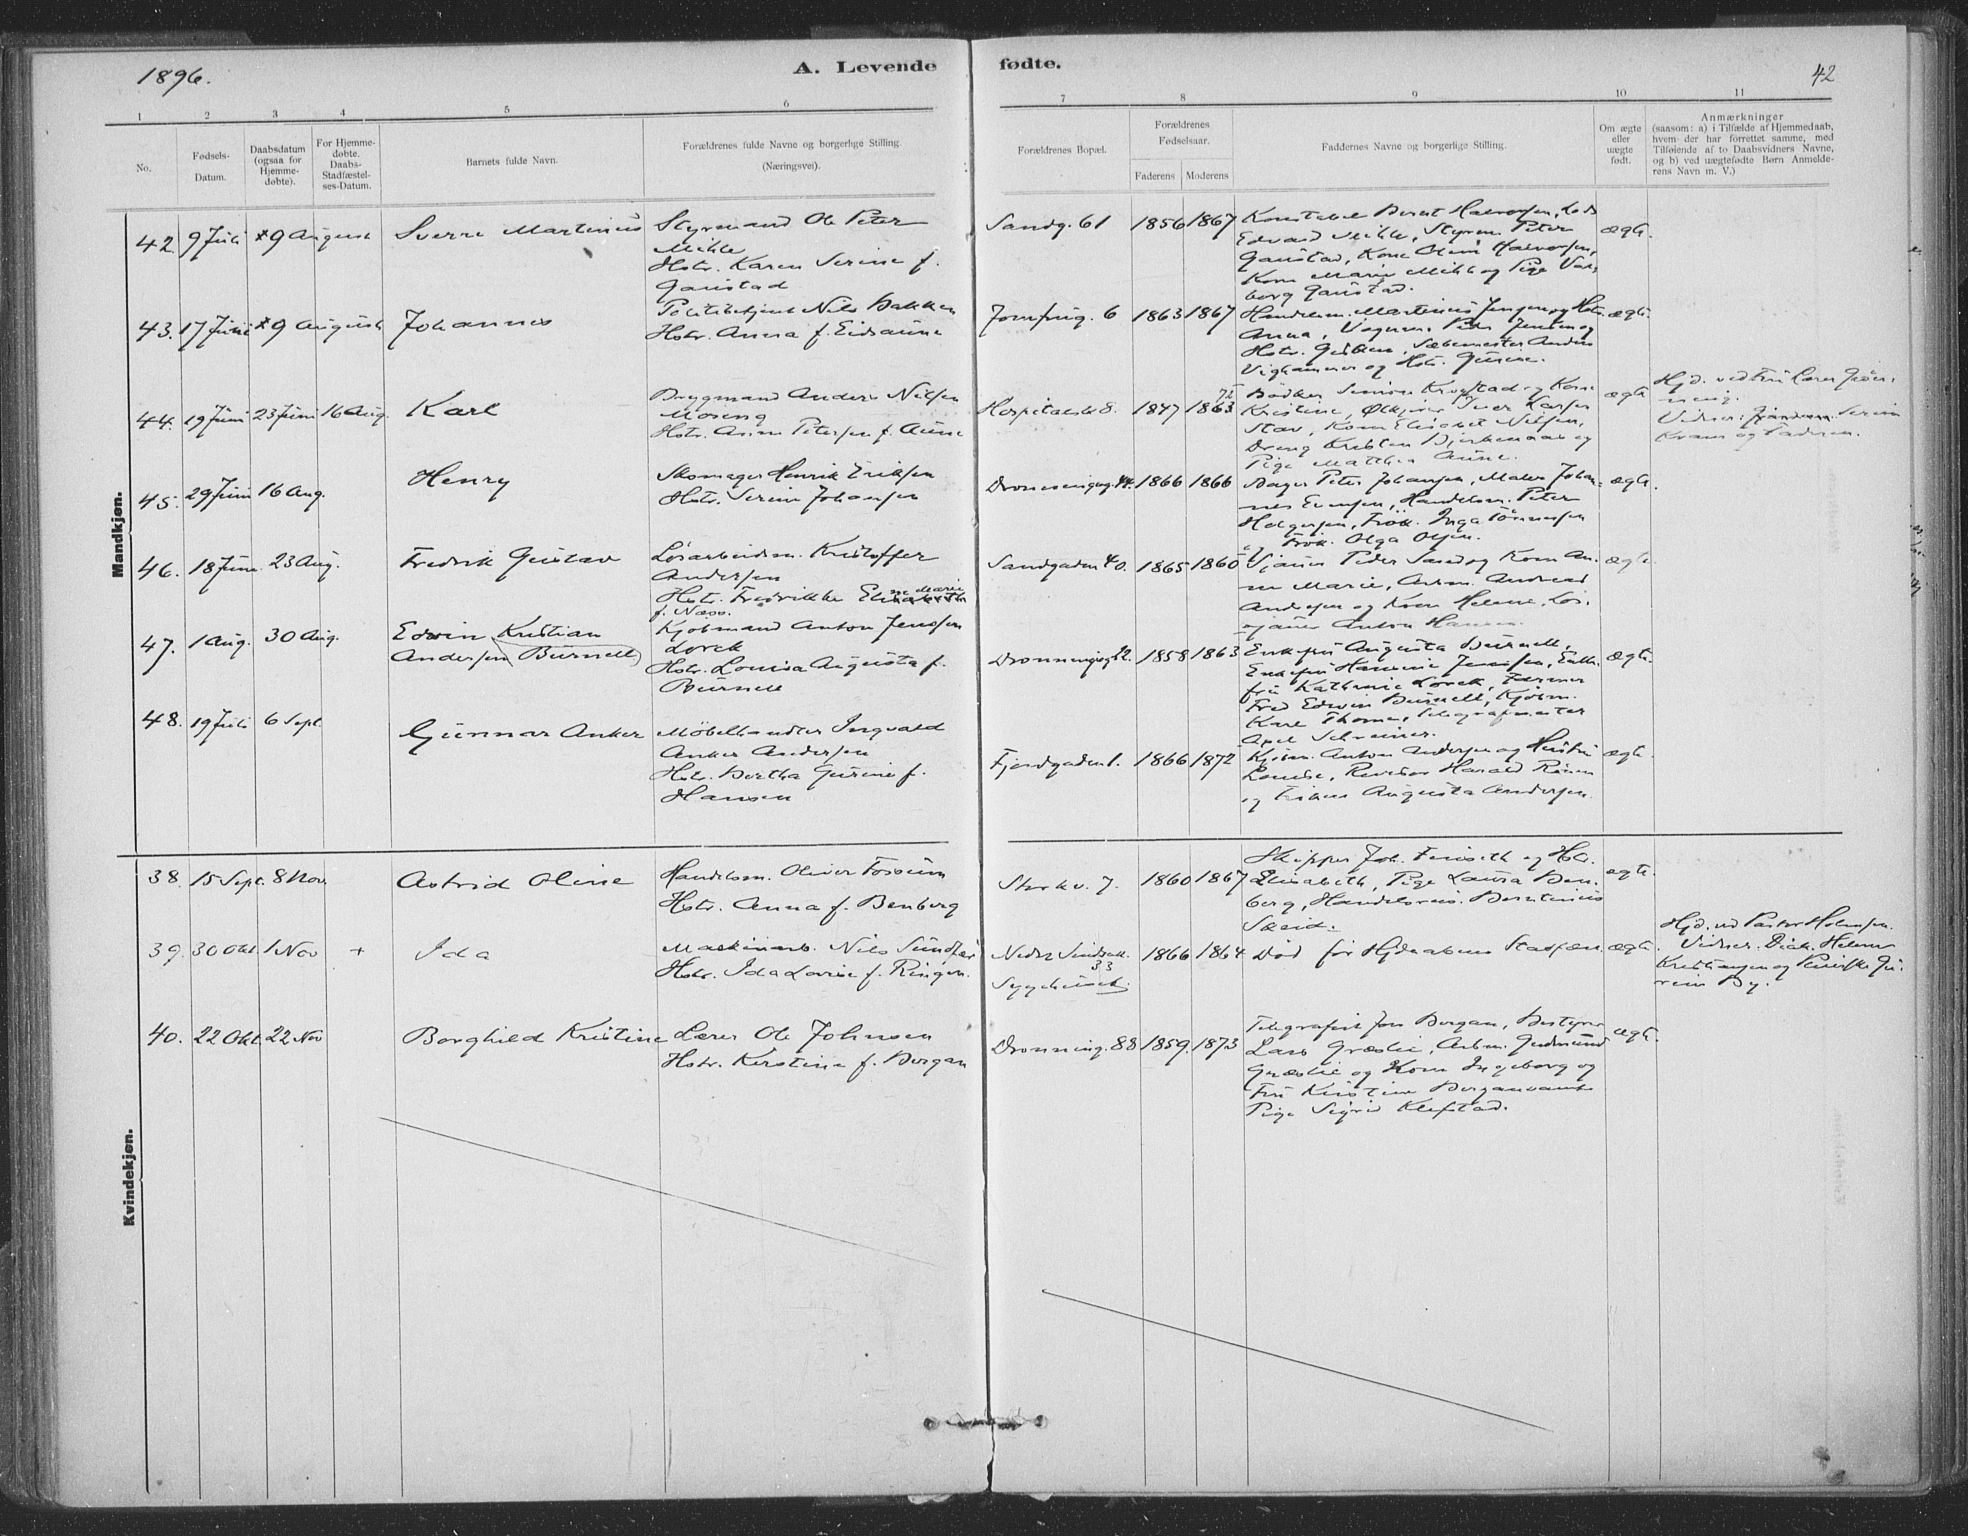 1896.
A. Levende fødte.
42
1 2 3 4 5 6 7 8 9 10 11
No.
Fødsels-Datum.
Daabsdatum (ogsaa for Hjemme-døbte).
For Hjemme-døbte. Daabs-Stadfæstel-ses-Datum.
Barnets fulde Navn.
Forældrenes fulde Navne og borgerlige Stilling.
(Næringsvei).
Forældrenes Bopæl.
Forældrenes Fødselsaar.
Faderens Moderens
Faddernes Navne og borgerlige Stilling.
Om ægte eller uægte født.
Anmærkninger
(saasom: a) i Tilfælde af Hjemmedaab,
hvem der har forrettet samme, med
Tilføiende af to Daabsvidners Navne,
og b) ved uægtefødte Børn Anmelde-
rens Navn m. V.)
Mandkjøn.
42. 9 Juli 9 August Sverre Martinius Styrmand Ole Peter
Mihle
Hstr. Karen Serine f.
Gaustad
Sandg. 61 1856 1867 Konstabel Bernt Halvorsen,
Edvard Mihle, Styrm. Peter
Gaustad, Kone Oline Halvorsen,
Kone Marie Mihle og Pige Val-
borg Gaustad.
ægte.
43. 17 Juni 9 August Johannes Politibetjent Nils Bakken
Hstr. Anna f. Eidsaune
Jomfrug. 6 1863 1867 Handelsm. Martinus Jensen og Hstr.
Anna, Vognm. Peder Jensen og
Hstr. , Sæbemester Anders
Vighammer og Hstr. Gurine.
ægte.
44. 19 Juni 23 Juni 16 Aug. Karl Brygmand Anders Nilsen
Moseng
Hstr. Anne Petersen f. Aune
Hospitalsl. 8. 1847 1863 Bødker Simon Krogstad og Kone
Kristine, Iver Larsen
Stav, Kone Elisabet Nilsen,
Dreng Kristen Bjerkenaas og
Pige Mathea Aune.
ægte
Hjd. ved Fru Larsen
Vidner: Serine
Kvam og Faderen.
45. 29 Juni 16 Aug. Henry Skomager Henrik Eriksen
Hstr. Serine Johansen
Dronningensg. 44. 1866 1866 Bager Peter Johansen, Maler Johan-
nes Evensen, Handelsm. Peter
Holgersen, Frøk. Inga Tønnesen
og Frøk. Olga Olsen.
ægte.
46. 18 June 23 Aug. Fredrik Gustav Løsarbeidsm. Kristoffer
Andersen
Hstr. Fredrikke Marie
f. Næss.
Sandgaden 40. 1865 1860 Sjauer Peder Sand og Kone An-
ne Marie, Arbm. Andreas
Andersen og Kone Helene, Løs-
sjauer Anton Hansen.
ægte
47. 1 Aug. 30 Aug. Edwin Kristian
Andersen Burnell
Kjøbmand Anton Jenssen
Lorck
Hstr. Louisa Augusta f.
Burnell
Dronningsg. 12. 1858 1863 Enkefru Augusta Burnell,
Enkefru Hansine Jenssen, Enke-
fru Kathrine Lorck, Farmer
Fred Edwin Burnell, Kjøbm.
Karl Thome, Telegrafmester
Axel Schreiner.
ægte.
48. 19 Juli 6 Sept. Gunnar Anker Møbelhandler Ingvald
Anker Andersen
Hstr. Bertha Gurine f.
Hansen
Fjordgaden 1. 1866 1872 Kjøbm. Anton Andersen og Hustru
Louise, Revisor Harald
og Frøken Augusta Andersen.
ægte.
Kvindekjøn.
38. 15 Sept. 8 Nov. Astrid Oline Handelsm. Oliver Fossum
Hstr. Anna f. Benberg
7. 1860 1867 Skipper Joh. Finseth og Hstr.
Elisabeth, Pige Laura Ben-
berg, Handelsreis. Berntinius
Skeid.
ægte.
39. 30 Okt. 1 Nov + Ida Maskinarb. Nils Sundfær
Hstr. Ida Lovise f. Ringen.
33
Sygehuset. 1866 1864 Død før Hjdaabens Stadfæst. ægte.
Hjd. ved Pastor Holmsen.
Vidner: Diak. Helene
Kristiansen og
By.
40. 22 Okt. 22 Nov Borghild Kristine Lærer Ole Johnsen
Hstr. Kerstine f. Bergan
Dronning. 88 1859. 1873 Telegrafist Jon Bergan, Bestyrer
Lars Græslie, Arbm. Gudmund
Græslie og Kone Ingeborg og
Fru Kristine Bergan samt
Pige Sigrid Klefstad.
ægte.